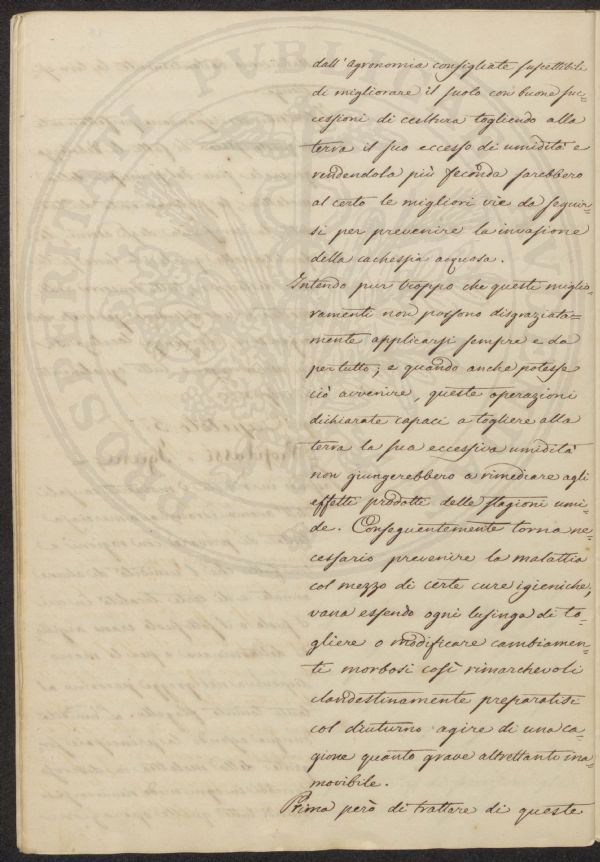 dall'agronomia consigliate suscettibili
di migliorare il suolo con buone suc=
cessioni di cultura togliendo alla
terra il suo eccesso di umidità e
rendendola più feconda sarebbero
al certo le migliori vie da seguir=
si per prevenire la invasione
della cachessia acquosa.
Intendo pur troppo che questi miglio=
ramenti non possono disgraziata=
mente applicarsi sempre e da
per tutto; e quando anche potesse
ciò avvenire, queste operazioni
dichiarate capaci a togliere alla
terra la sua eccessiva umidità
non giungerebbero a rimediare agli
effetti prodotti delle stagioni umi=
de. Conseguentemente torna ne=
cessario prevenire la malattia
col mezzo di certe cure igieniche,
vana essendo ogni lusinga di to=
gliere o modificare cambiamen=
ti morbosi così rimarchevoli
clandestinamente preparatisi
col diuturno agire di una ca=
gione quanto grave altrettanto ina=
movibile.
Prima però di trattare di queste
PROSPERITATI PUBLICAE